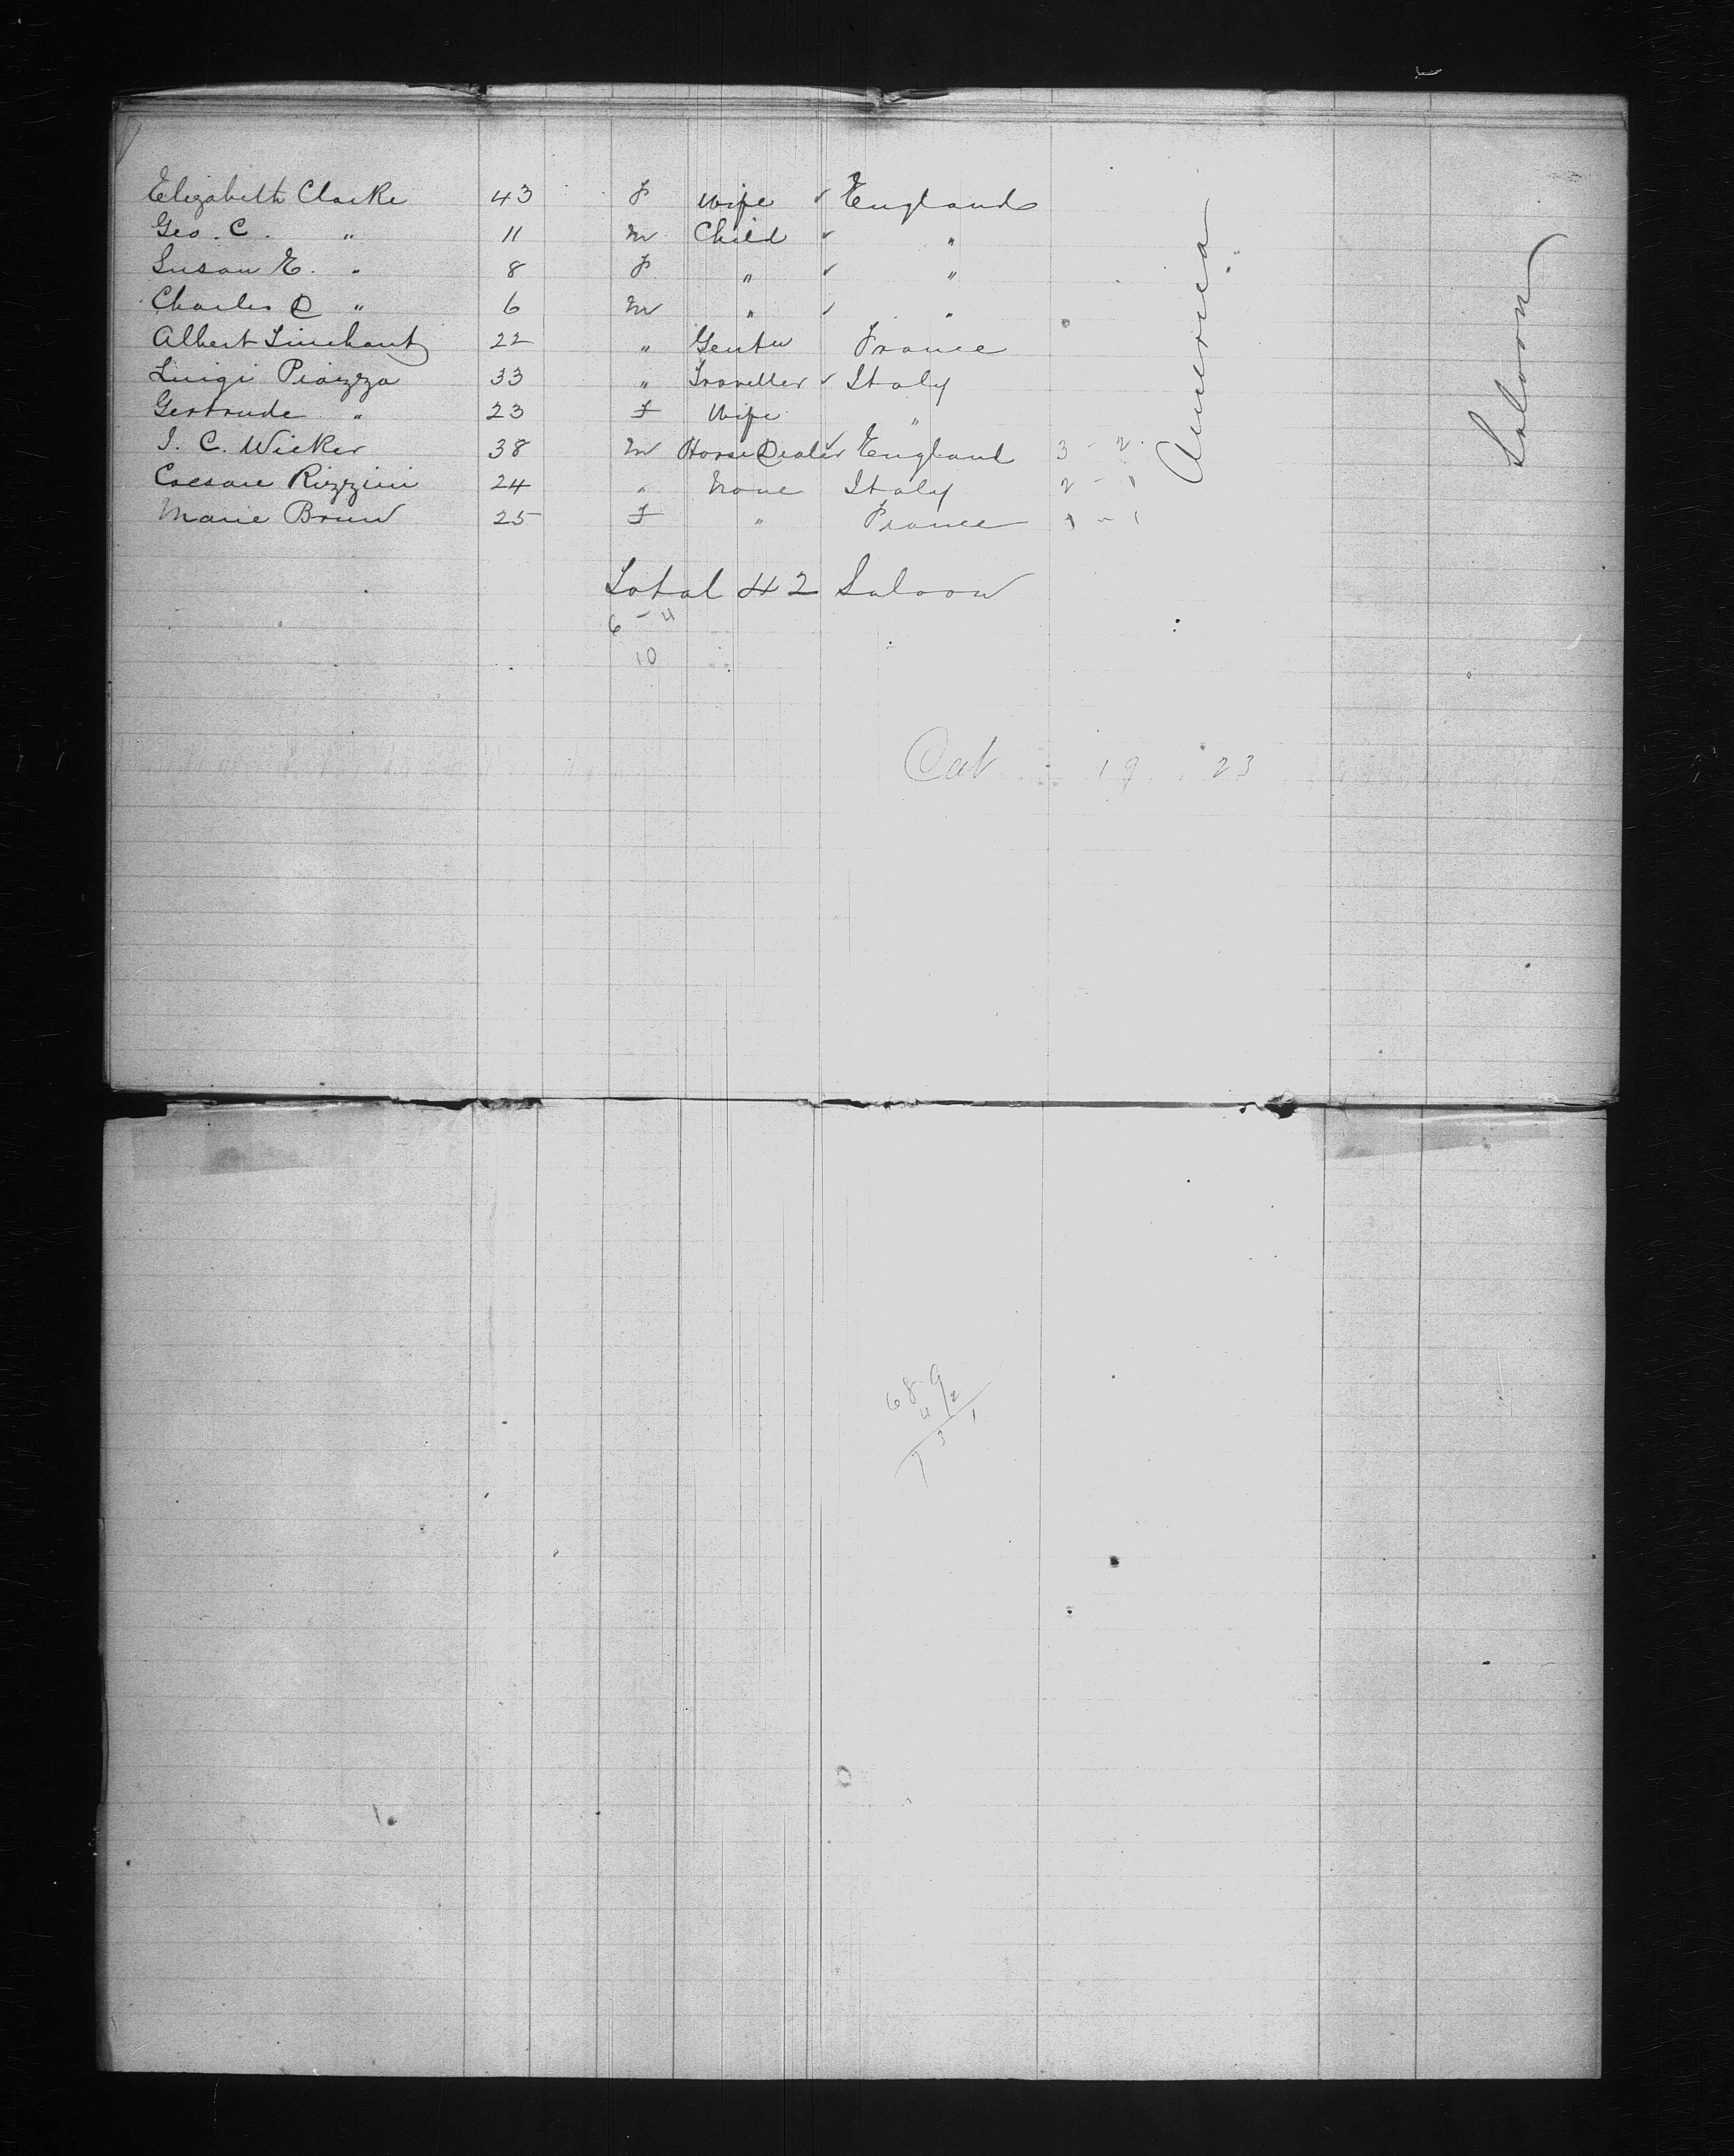 Elizabeth Clarke 43 F Wife ✓ England
Geo. C. " 11 M Child ✓ "
Susan E. " 8 F " ✓ "
Charles C " 6 M " ✓ "
Albert 22 " Gentn France
Luigi Piazza 33 " Traveller ✓ Italy
Gertrude " 23 F Wife "
J. C. Wicker 38 M Horse Dealer ✓ England 3 - 2
Caesare Rizzini 24 " None Italy 2 - 1
Marie Brun 25 F " France 1 - 1
America
Saloon
Total 42 Saloon
6 - 4
10
19 23
689
42
731